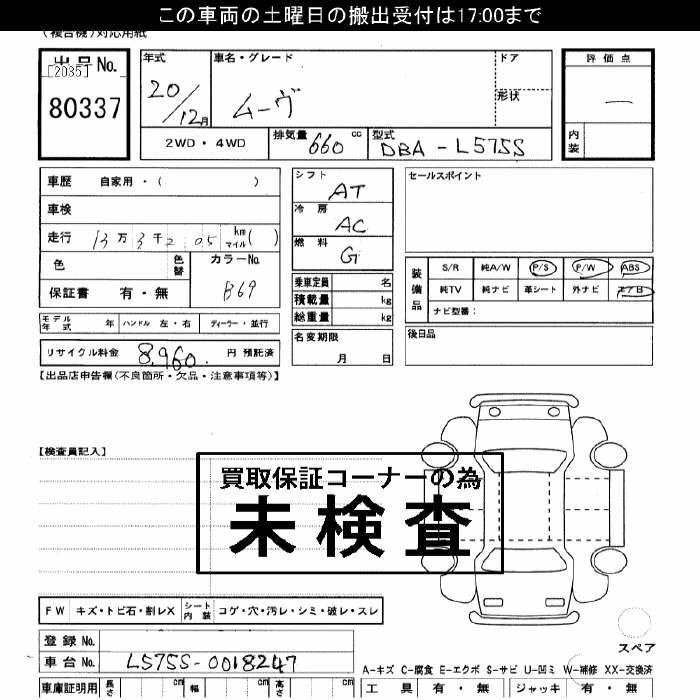 この車両の土曜日の搬出受付は17:00まで
(複合機)対応用紙
出品No.
[2035]
80337
年式
20/12月
車名・グレード
ムーヴ
ドア
形状
評価点
—
内装
2WD・4WD
排気量 660 cc
型式 DBA-L575S
車歴 自家用・( )
車検
走行 13万3千2 05 km マイル( )
色
色替
カラーNo. B69
保証書 有・無
シフト AT
冷房 AC
燃料 G
乗車定員 名
積載量 kg
総重量 kg
セールスポイント
装備品
S/R 純A/W P/S P/W ABS
純TV 純ナビ 革シート 外ナビ エアB
ナビ型番:
モデル年式 年 ハンドル 左・右 ディーラー・並行
リサイクル料金 8,960 円 預託済
名変期限
月 日
後日品
【出品店申告欄(不良箇所・欠品・注意事項等)】
【検査員記入】
買取保証コーナーの為
未検査
FW キズ・トビ石・割レX シート内装 コゲ・穴・汚レ・シミ・破レ・スレ
登録No.
車台No. L575S-0018247
スペア
A-キズ C-腐食 E-エクボ S-サビ U-凹ミ W-補修 XX-交換済
車庫証明用 長さ cm 幅 cm 高さ cm
工具 有・無 ジャッキ 有・無